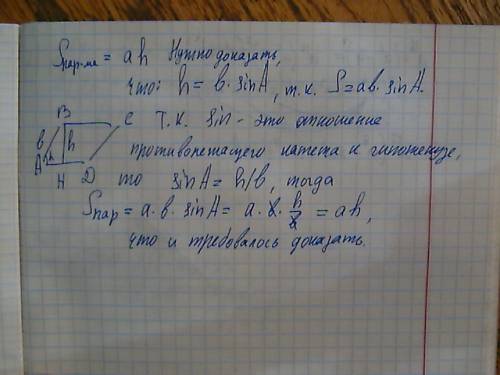 Sпар-ма = ah Нужно доказать,
что: h = b · sinA, т.к. S = ab · sinA.
B
C Т.К. sin - это отношение
b h
A противолежащего катета к гипотенузе,
H D то sinA = h/b, тогда
Sпар = a · b · sinA = a · b · h/b = ah,
что и требовалось доказать.